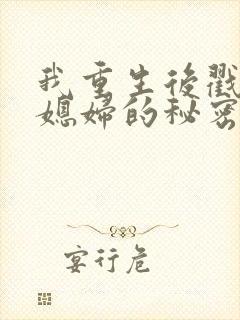 我重生后戳
媳妇的秘密
宴行危